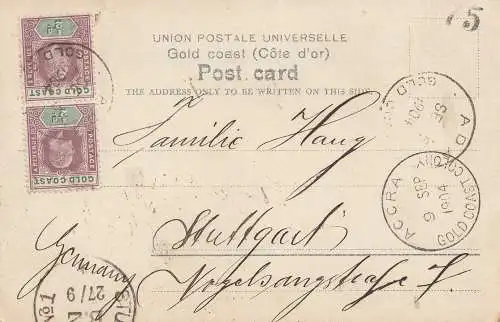 UNION POSTALE UNIVERSELLE
Gold coast (Côte d'or)
Post card
THE ADDRESS ONLY TO BE WRITTEN ON THIS SIDE
Familie Haug
Stuttgart
Vogelsangstrasse 7.
Germany
5
½d
POSTAGE
GOLD COAST
½d
POSTAGE
GOLD COAST
GOLD
ACCRA
9 SEP
1904
GOLD COAST COLONY
1904
SE
STU
No1
27/9